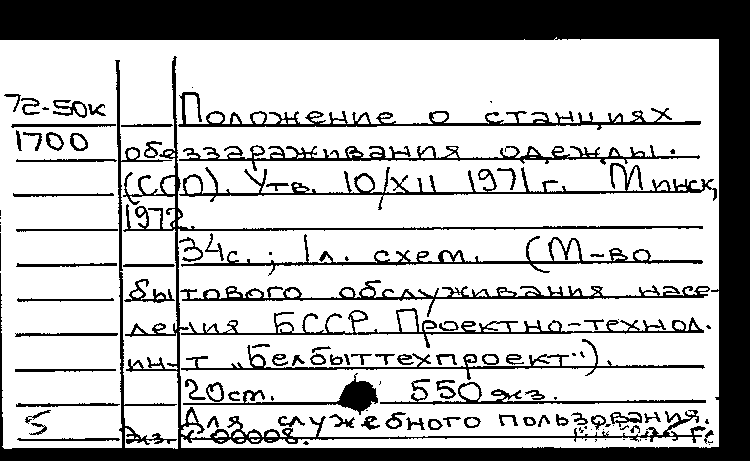 72-50к
1700
Положение о станциях
обеззараживания одежды.
(СОО). Утв. 10/XII 1971 г. Минск,
1972.
34с.; 1л. схем. (М-во
бытового обслуживания насе-
ления БССР. Проектно-технол.
ин-т „Белбыттехпроект").
20см. 550 экз.
Для служебного пользования.
5
Экз. № 00008.